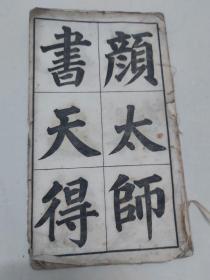 顔太師
書天得